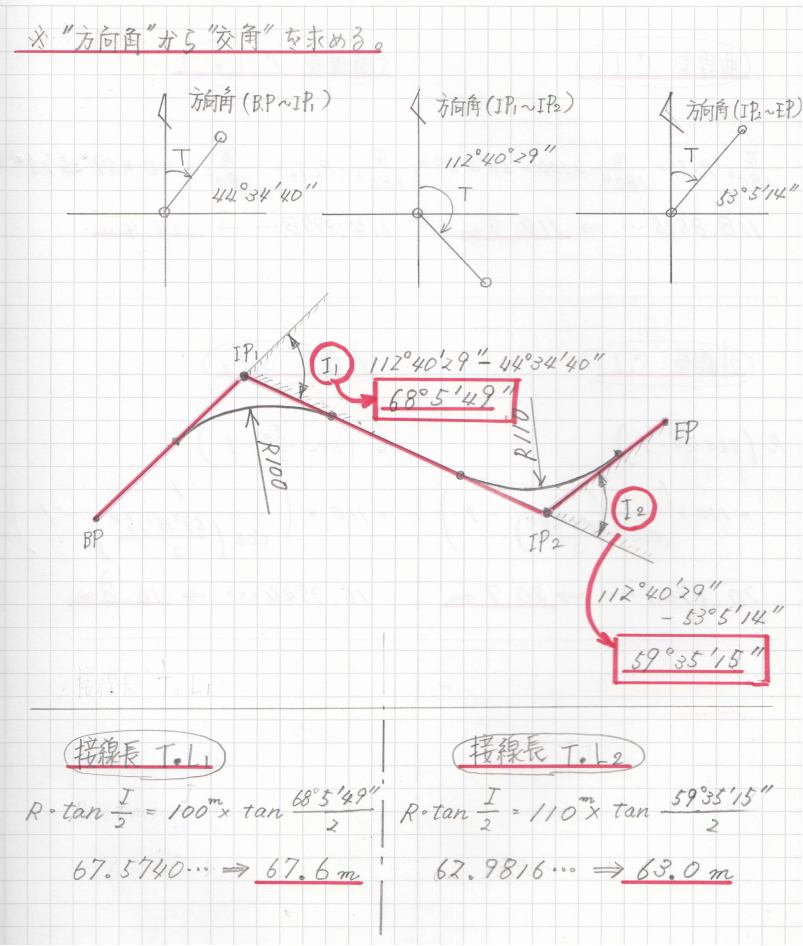 ※ "方向角"から"交角"を求める。
方向角(B.P~IP₁)
T
44°34′40″
方向角(IP₁~IP₂)
112°40′29″
T
方向角(IP₂~EP)
T
53°5′14″
IP₁
I₁
112°40′29″-44°34′40″
68°5′49″
R100
R110
BP
EP
IP₂
I₂
112°40′29″
-53°5′14″
59°35′15″
接線長 T.L₁
R・tan I/2 = 100ᵐ× tan 68°5′49″/2
67.5740… ⇒ 67.6 m
接線長 T.L₂
R・tan I/2 = 110ᵐ× tan 59°35′15″/2
62.9816… ⇒ 63.0 m